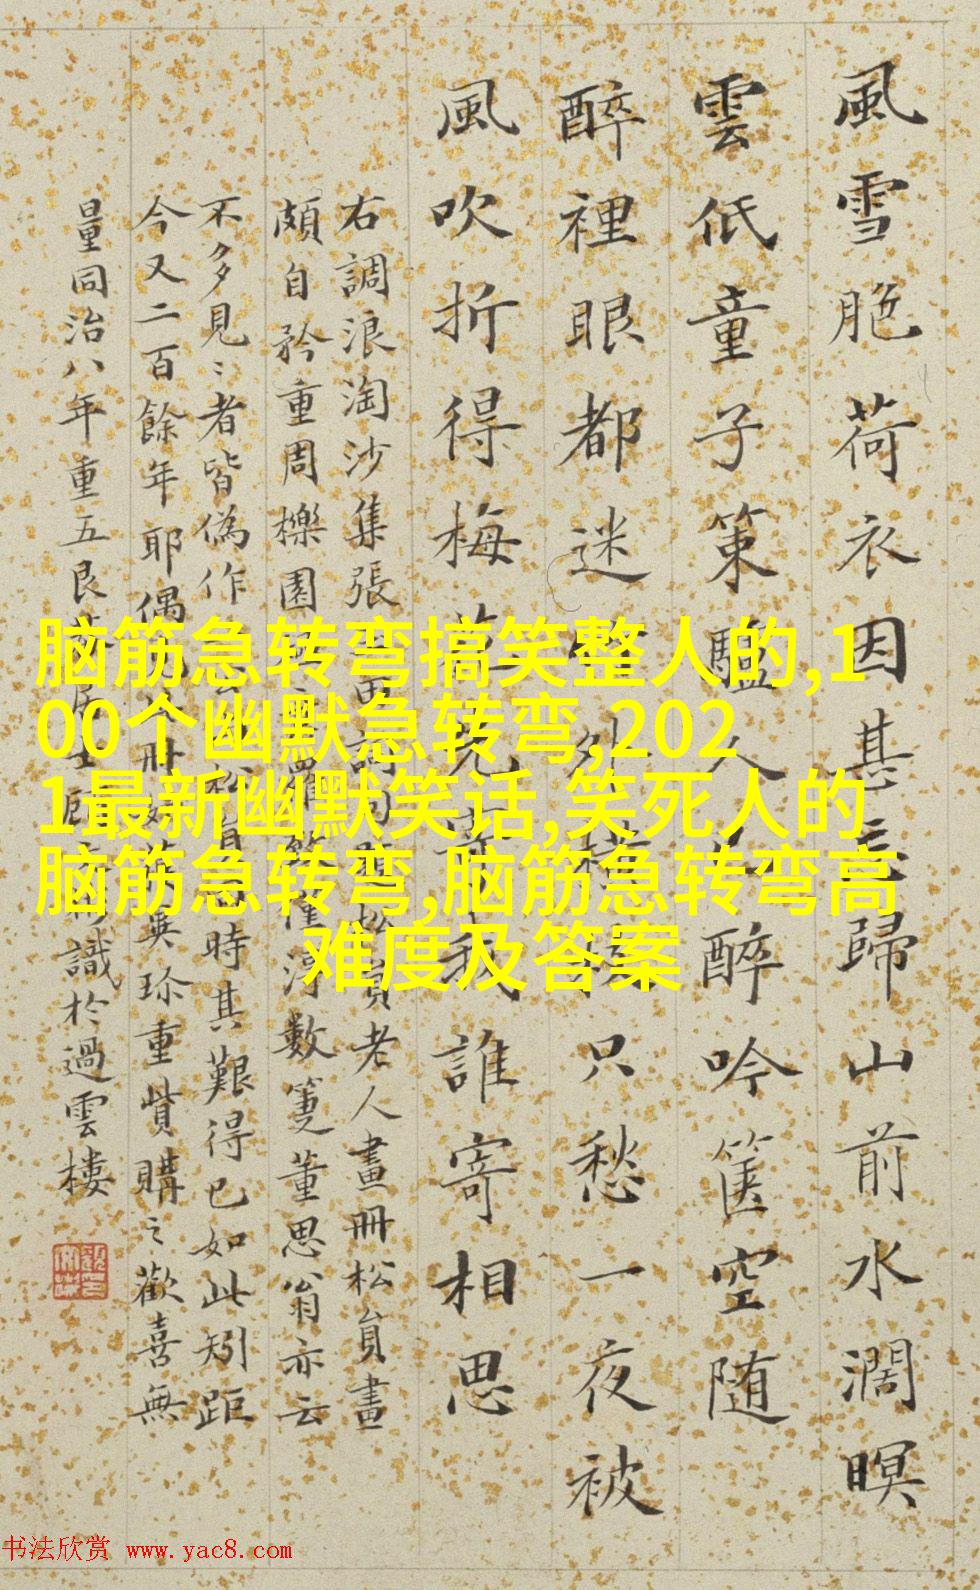 風雪脃荷衣因甚歸山前水濶暝
雲低童子策驢人醉吟篋空随
醉裡眼都迷只愁一夜被
風吹折得梅我誰寄相思
右調浪淘沙集張老人畫冊松負畫
頗自矜重周櫟園數篗董思翁亦云
不多見〻者皆偽作時其艱得已如此矧距
今又二百餘年耶偶冊珎重貲購之歡喜無
量同治八年重五艮識於過雲樓
脑筋急转弯搞笑整人的,1
00个幽默急转弯,202
1最新幽默笑话,笑死人的
脑筋急转弯,脑筋急转弯高
难度及答案
书法欣赏 www.yac8.com